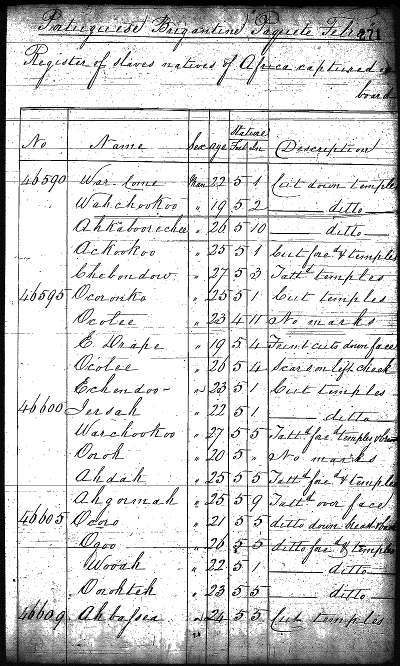 Portuguese Brigantine "Paquete Feliz" 271
Register of slaves natives of Africa captured on
board
No Name Sex age Stature Feet In Description
46590 War-lome Man 22 5 1 Cut down temples
Wahchookoo " 19 5 2 ditto
Ahkaboorechee " 26 5 10 ditto
Ackookoo " 25 5 1 Cut fore^d & temples
Chebondow " 27 5 3 Tatt^d temples
46595 Ocoronko " 25 5 1 Cut temples
Ocolee " 23 4 11 No marks
E Drape " 19 5 4 Faint cuts down face
Ocolee " 26 5 4 Scars on left cheek
Echendoo " 23 5 1 Cut temples
46600 Jersah " 22 5 1 ditto
Warchookoo " 27 5 5 Tatt^d fore^d temples &
Oroh " 20 5 " No marks
Ahdah " 25 5 5 Tatt^d fore^d & temples
Ahgormah " 25 5 9 Tatt^d over face
46605 Ocoro " 21 5 5 ditto down
Ogoo " 26 5 5 ditto fore^d & temples
Wooah " 22 5 1 ditto
Orohteh " 23 5 5 ditto
46609 Ahbassea " 24 5 5 Cut temples